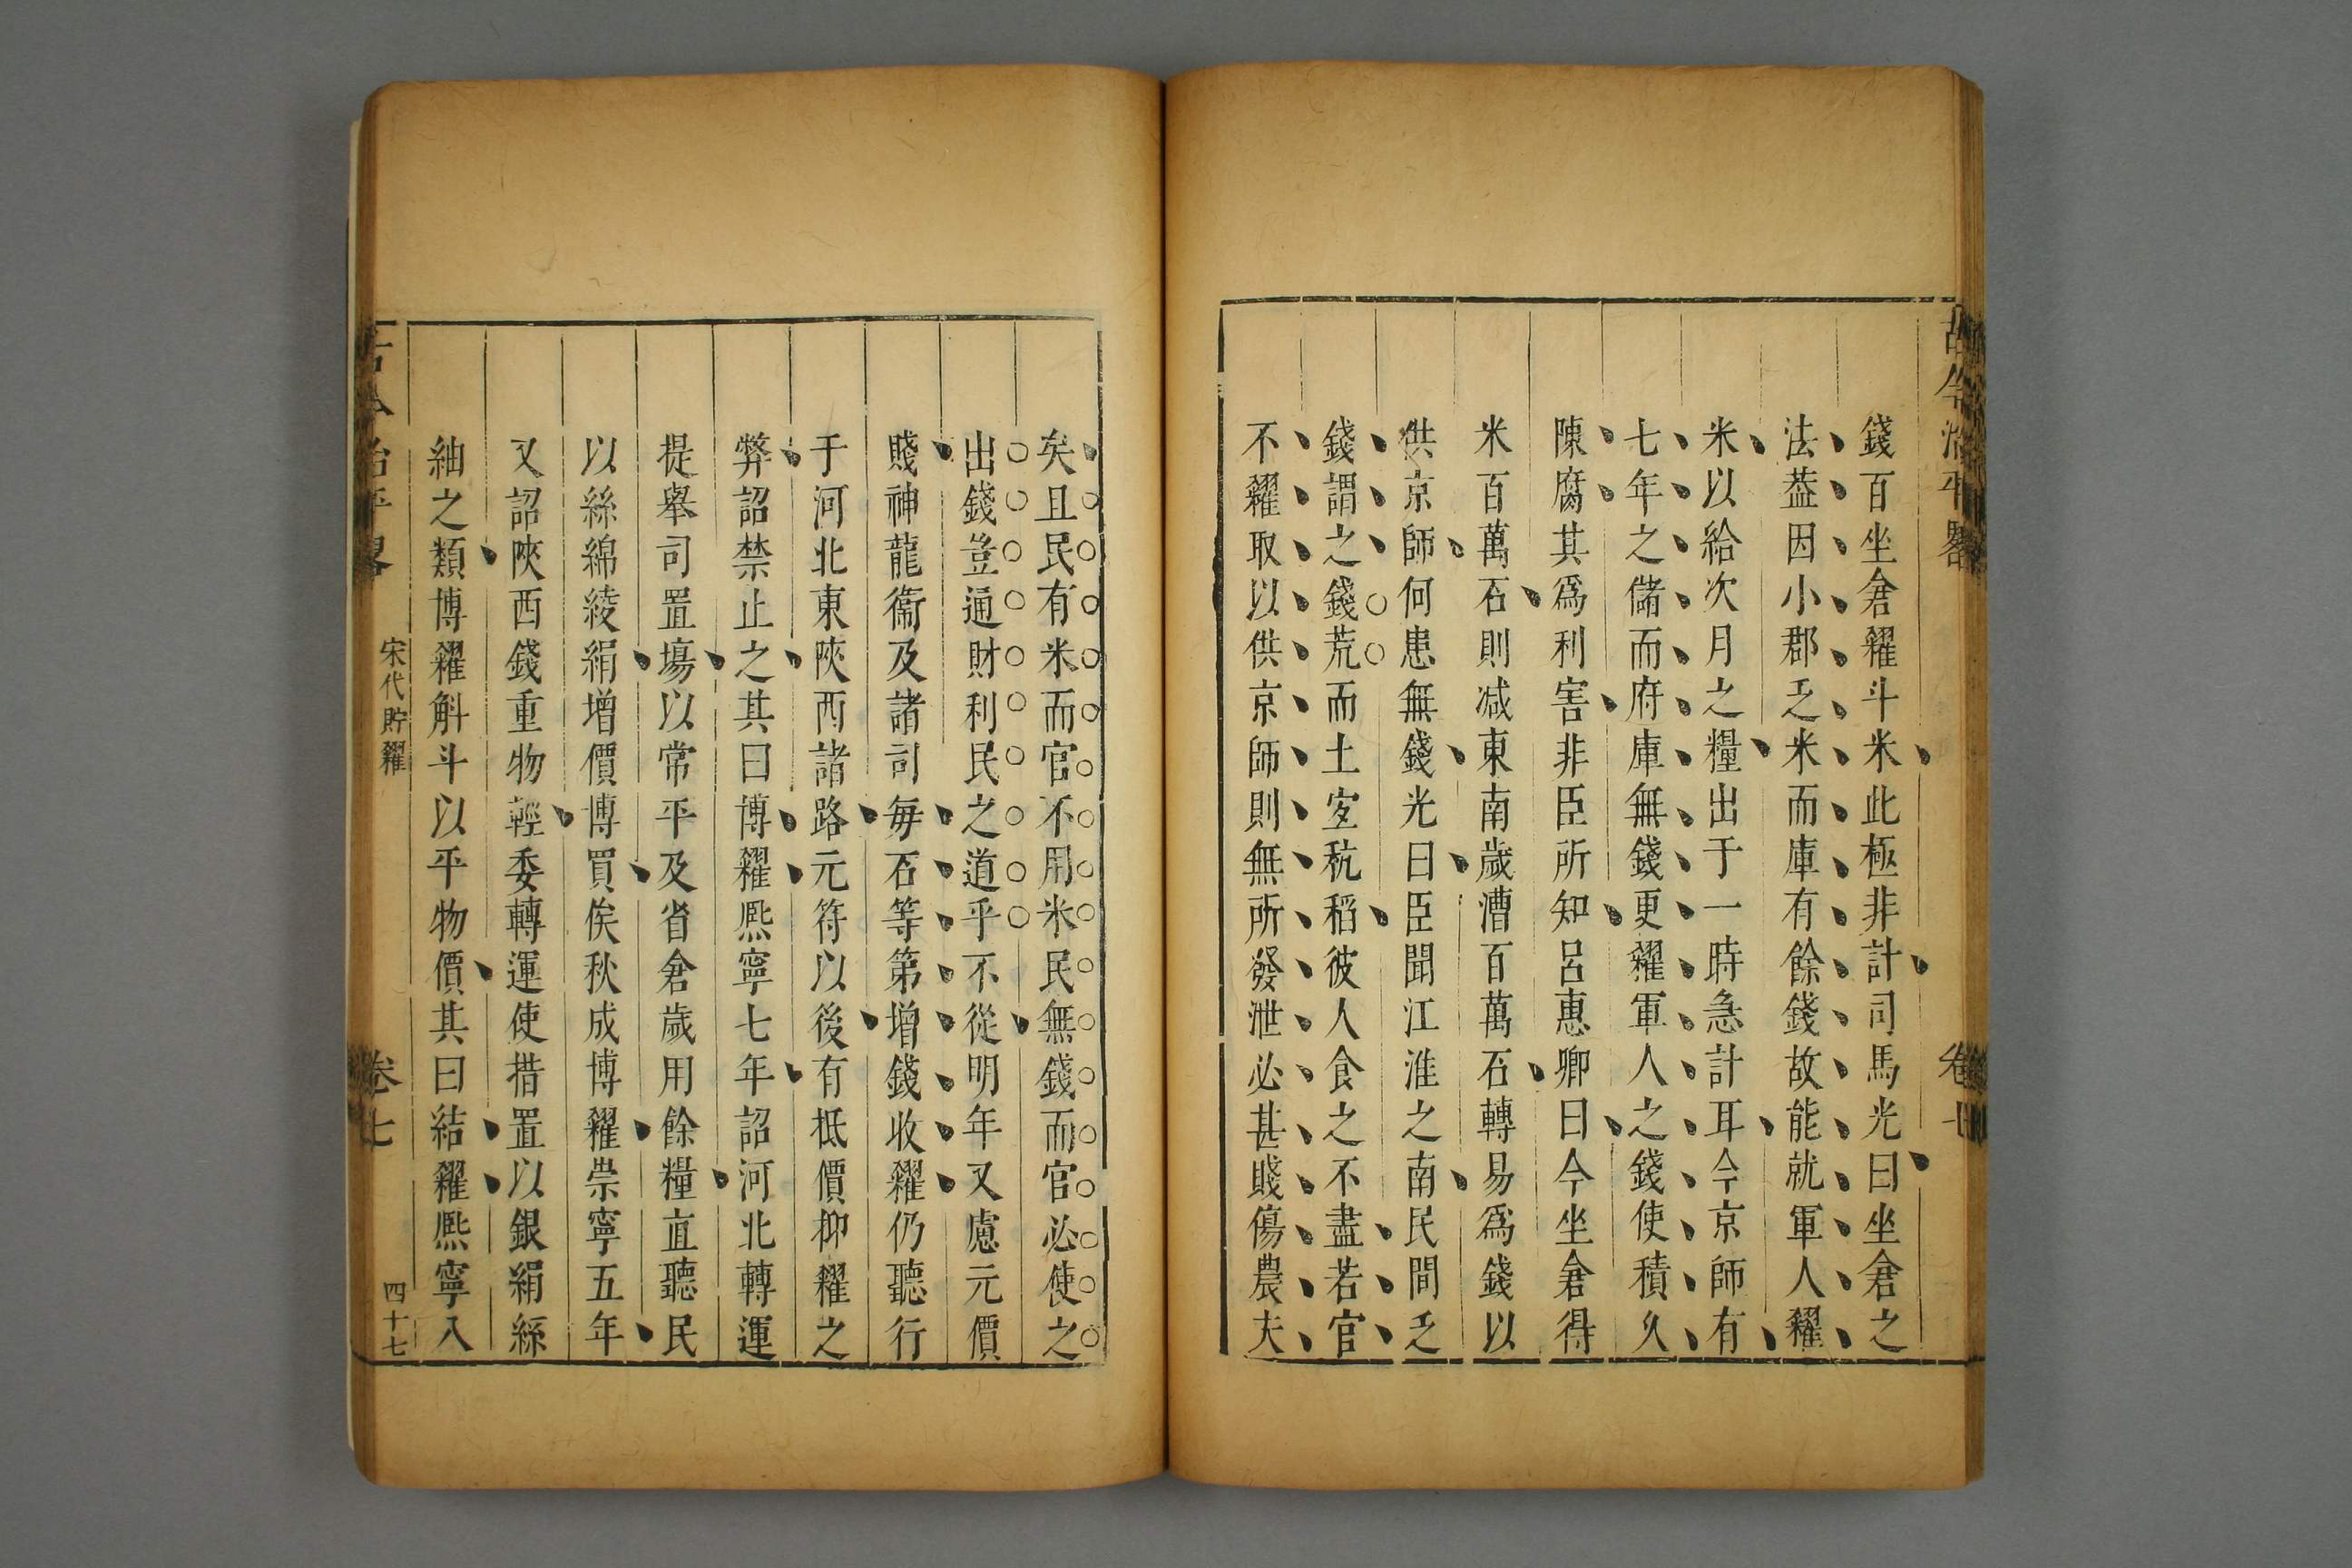 錢百坐倉糴斗米此極非計司馬光曰坐倉之
法葢因小郡乏米而庫有餘錢故能就軍人糴
米以給次月之糧出于一時急計耳今京師有
七年之儲而府庫無錢更糴軍人之錢使積久
陳腐其爲利害非臣所知呂惠卿曰今坐倉得
米百萬石則减東南歲漕百萬石轉易爲錢以
供京師何患無錢光曰臣聞江淮之南民間乏
錢謂之錢荒而土宜秔稻彼人食之不盡若官
不糴取以供京師則無所發泄必甚賤傷農夫
矣且民有米而官不用米民無錢而官必使之
出錢豈通財利民之道乎不從明年又慮元價
賤神龍衞及諸司每石等第增錢收糴仍聽行
于河北東陝西諸路元符以後有抵價抑糴之
弊詔禁止之其曰博糴熈寧七年詔河北轉運
提舉司置塲以常平及省倉歲用餘糧直聽民
以絲綿綾絹增價博買俟秋成博糴崇寧五年
又詔陝西錢重物輕委轉運使措置以銀絹絲
紬之類博糴斛斗以平物價其曰結糴熈寧入
古今治平畧
宋代貯糴
卷七
四十七